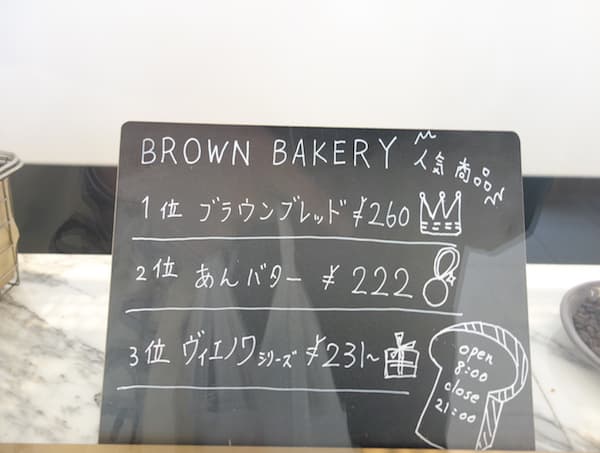 BROWN BAKERY 人気商品
1位 ブラウンブレッド ¥260
2位 あんバター ¥222
3位 ヴィエノワシリーズ ¥231~
open
8:00
close
21:00